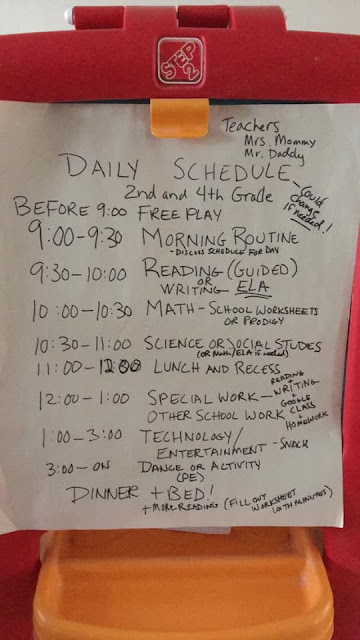 STEP 2
Teachers
Mrs. Mommy
Mr. Daddy
DAILY SCHEDULE
2nd and 4th Grade - Could change if needed!
BEFORE 9:00 FREE PLAY
9:00-9:30 MORNING ROUTINE
- DISCUSS SCHEDULE FOR DAY
9:30-10:00 READING (GUIDED)
OR
WRITING - ELA
10:00-10:30 MATH - SCHOOL WORKSHEETS
OR PRODIGY
10:30-11:00 SCIENCE OR SOCIAL STUDES
(OR MATH/ELA if needed)
11:00-12:00 LUNCH AND RECESS
12:00-1:00 SPECIAL WORK - READING + WRITING
OTHER SCHOOL WORK + GOOGLE CLASS + HOMEWORK
1:00-3:00 TECHNOLOGY/
ENTERTAINMENT - SNACK
3:00-ON DANCE OR ACTIVITY
(PE)
DINNER + BED!
+ MORE READING (FILL OUT WORKSHEET WITH MINUTES)